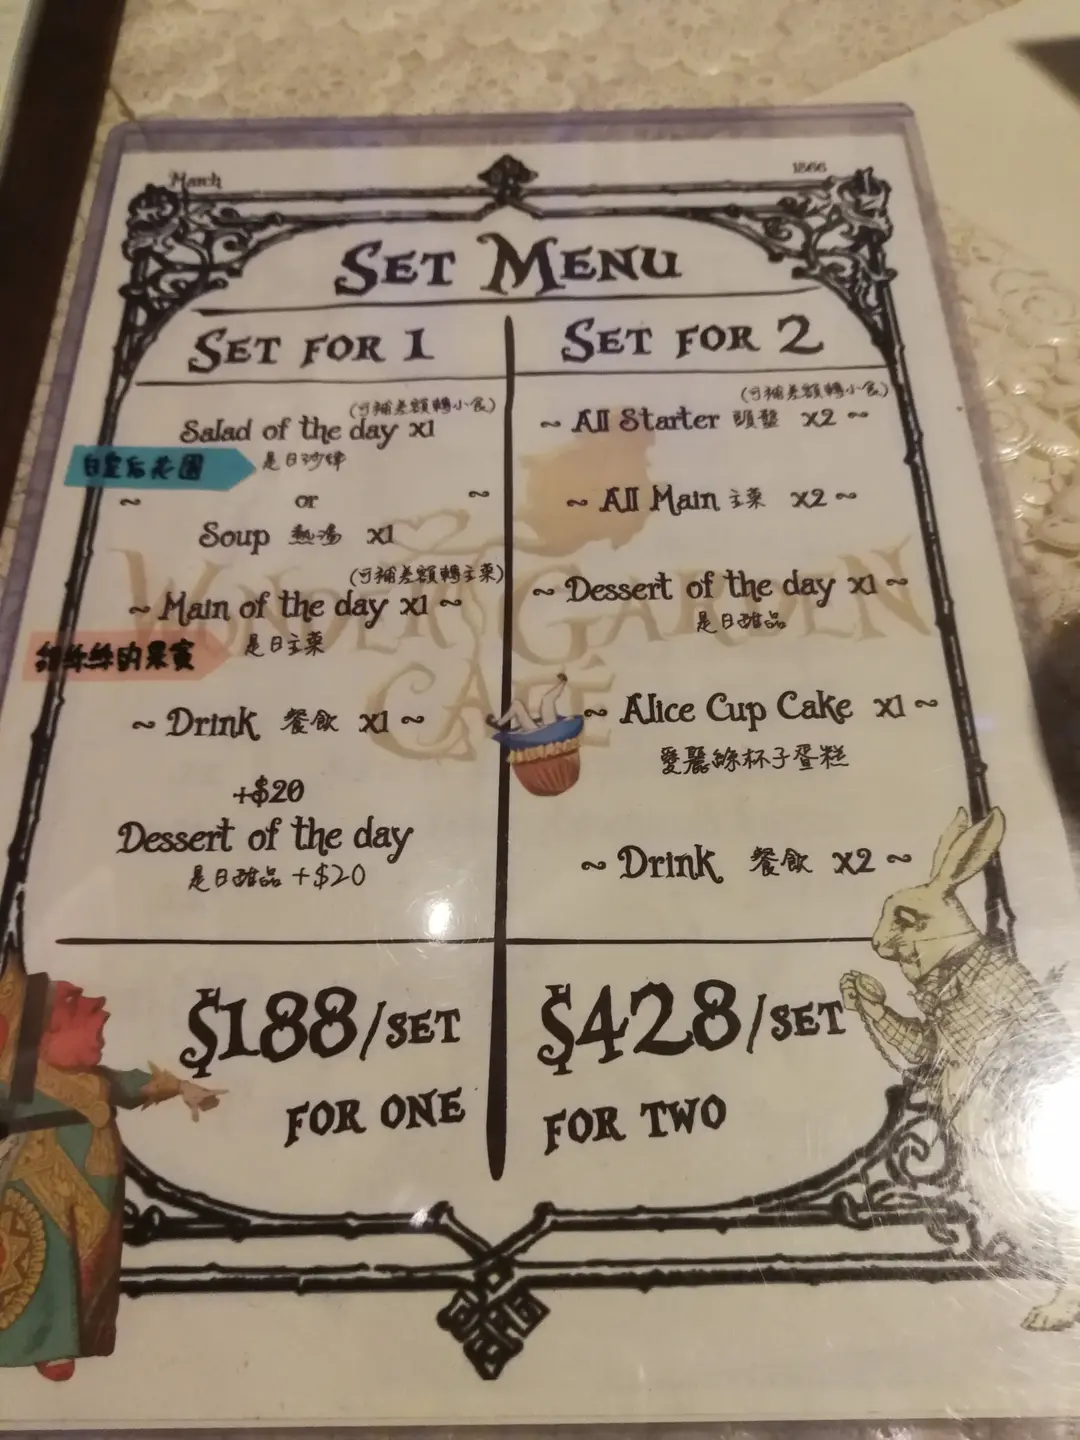 March
1866
SET MENU
SET FOR 1
(可補差額轉小食)
Salad of the day x1
白皇后花園
是日沙律
~ or ~
Soup 熱湯 x1
(可補差額轉主菜)
~ Main of the day x1 ~
甜絲絲的果實
是日主菜
~ Drink 餐飲 x1 ~
+$20
Dessert of the day
是日甜品 +$20
$188/SET
FOR ONE
SET FOR 2
(可補差額轉小食)
~ All Starter 頭盤 x2 ~
~ All Main 主菜 x2 ~
~ Dessert of the day x1 ~
是日甜品
~ Alice Cup Cake x1 ~
愛麗絲杯子蛋糕
~ Drink 餐飲 x2 ~
$428/SET
FOR TWO
WONDER GARDEN
CAFÉ